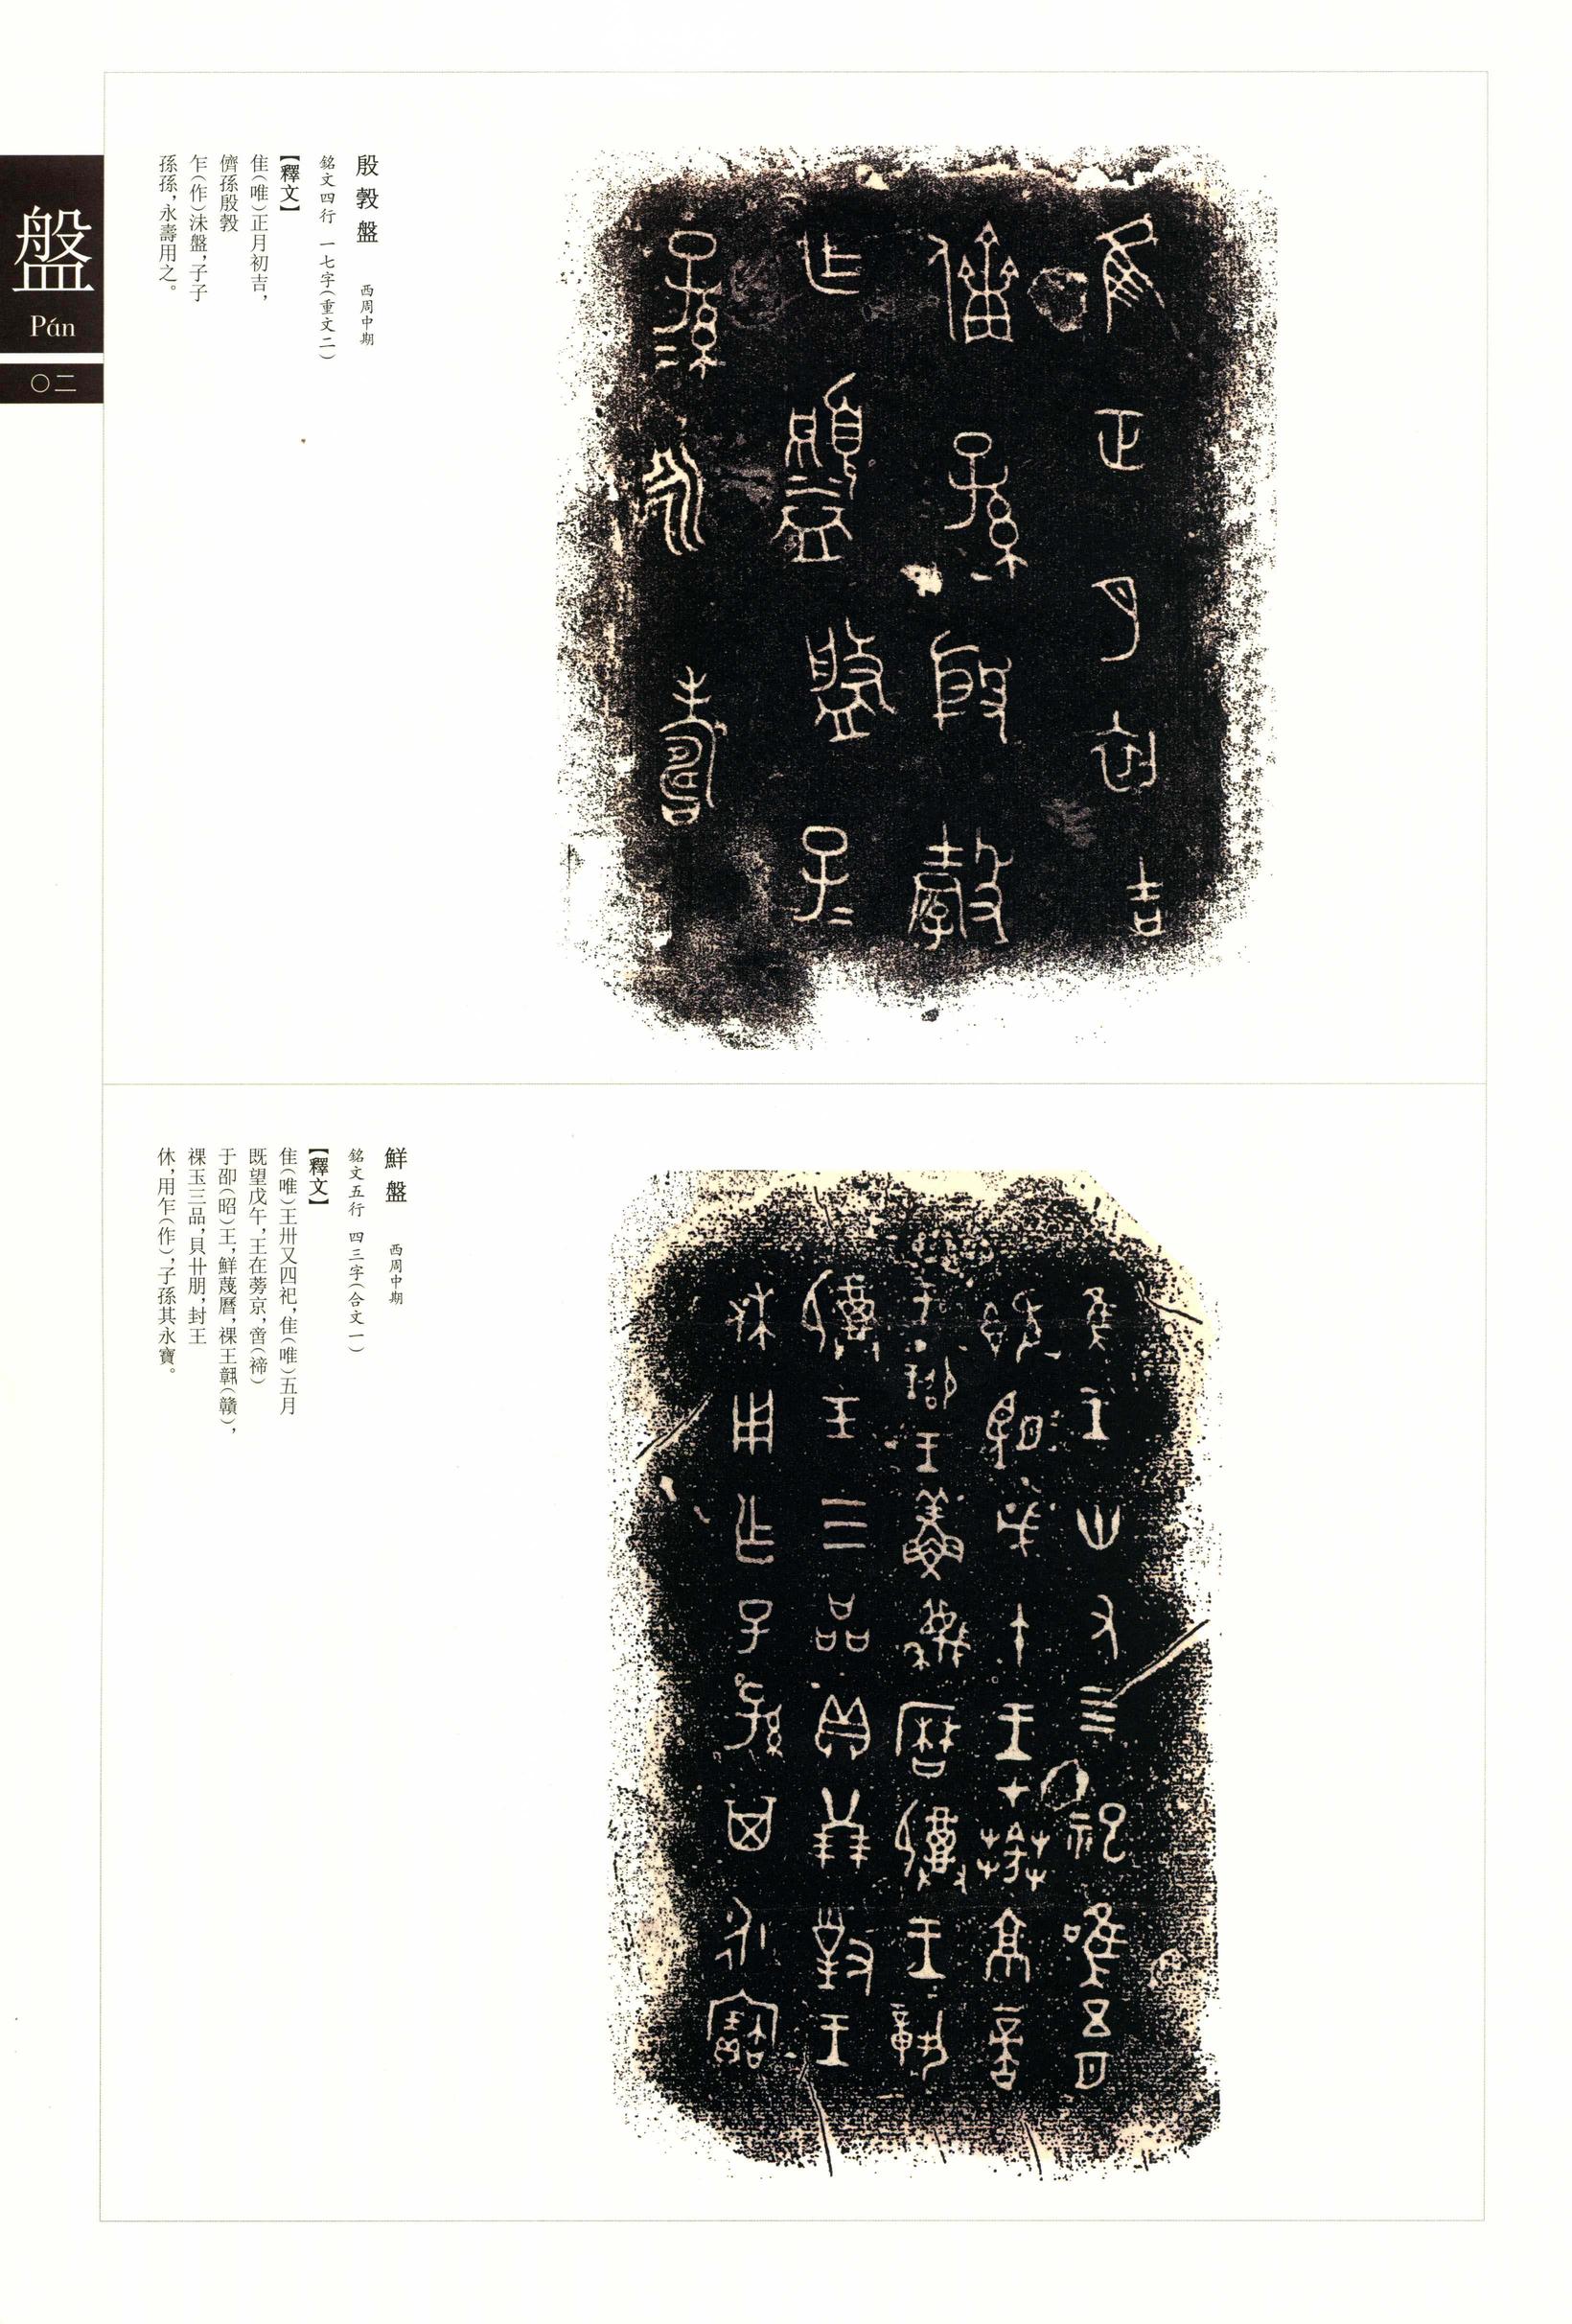 盤
Pán
〇二
殷㝅盤 西周中期
銘文四行 一七字(重文二)
【釋文】
隹(唯)正月初吉,
儕孫殷㝅
乍(作)沬盤,子子
孫孫,永壽用之。
鮮盤 西周中期
銘文五行 四三字(合文一)
【釋文】
隹(唯)王卅又四祀,隹(唯)五月
既望戊午,王在蒡京,啻(禘)
于卲(昭)王,鮮蔑曆,祼王𩏑(贛),
祼玉三品,貝廿朋,封王
休,用乍(作),子孫其永寶。